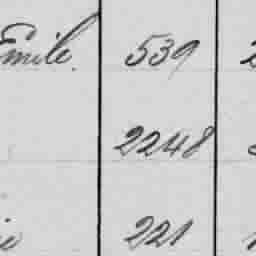 Emile. 539
2248
221